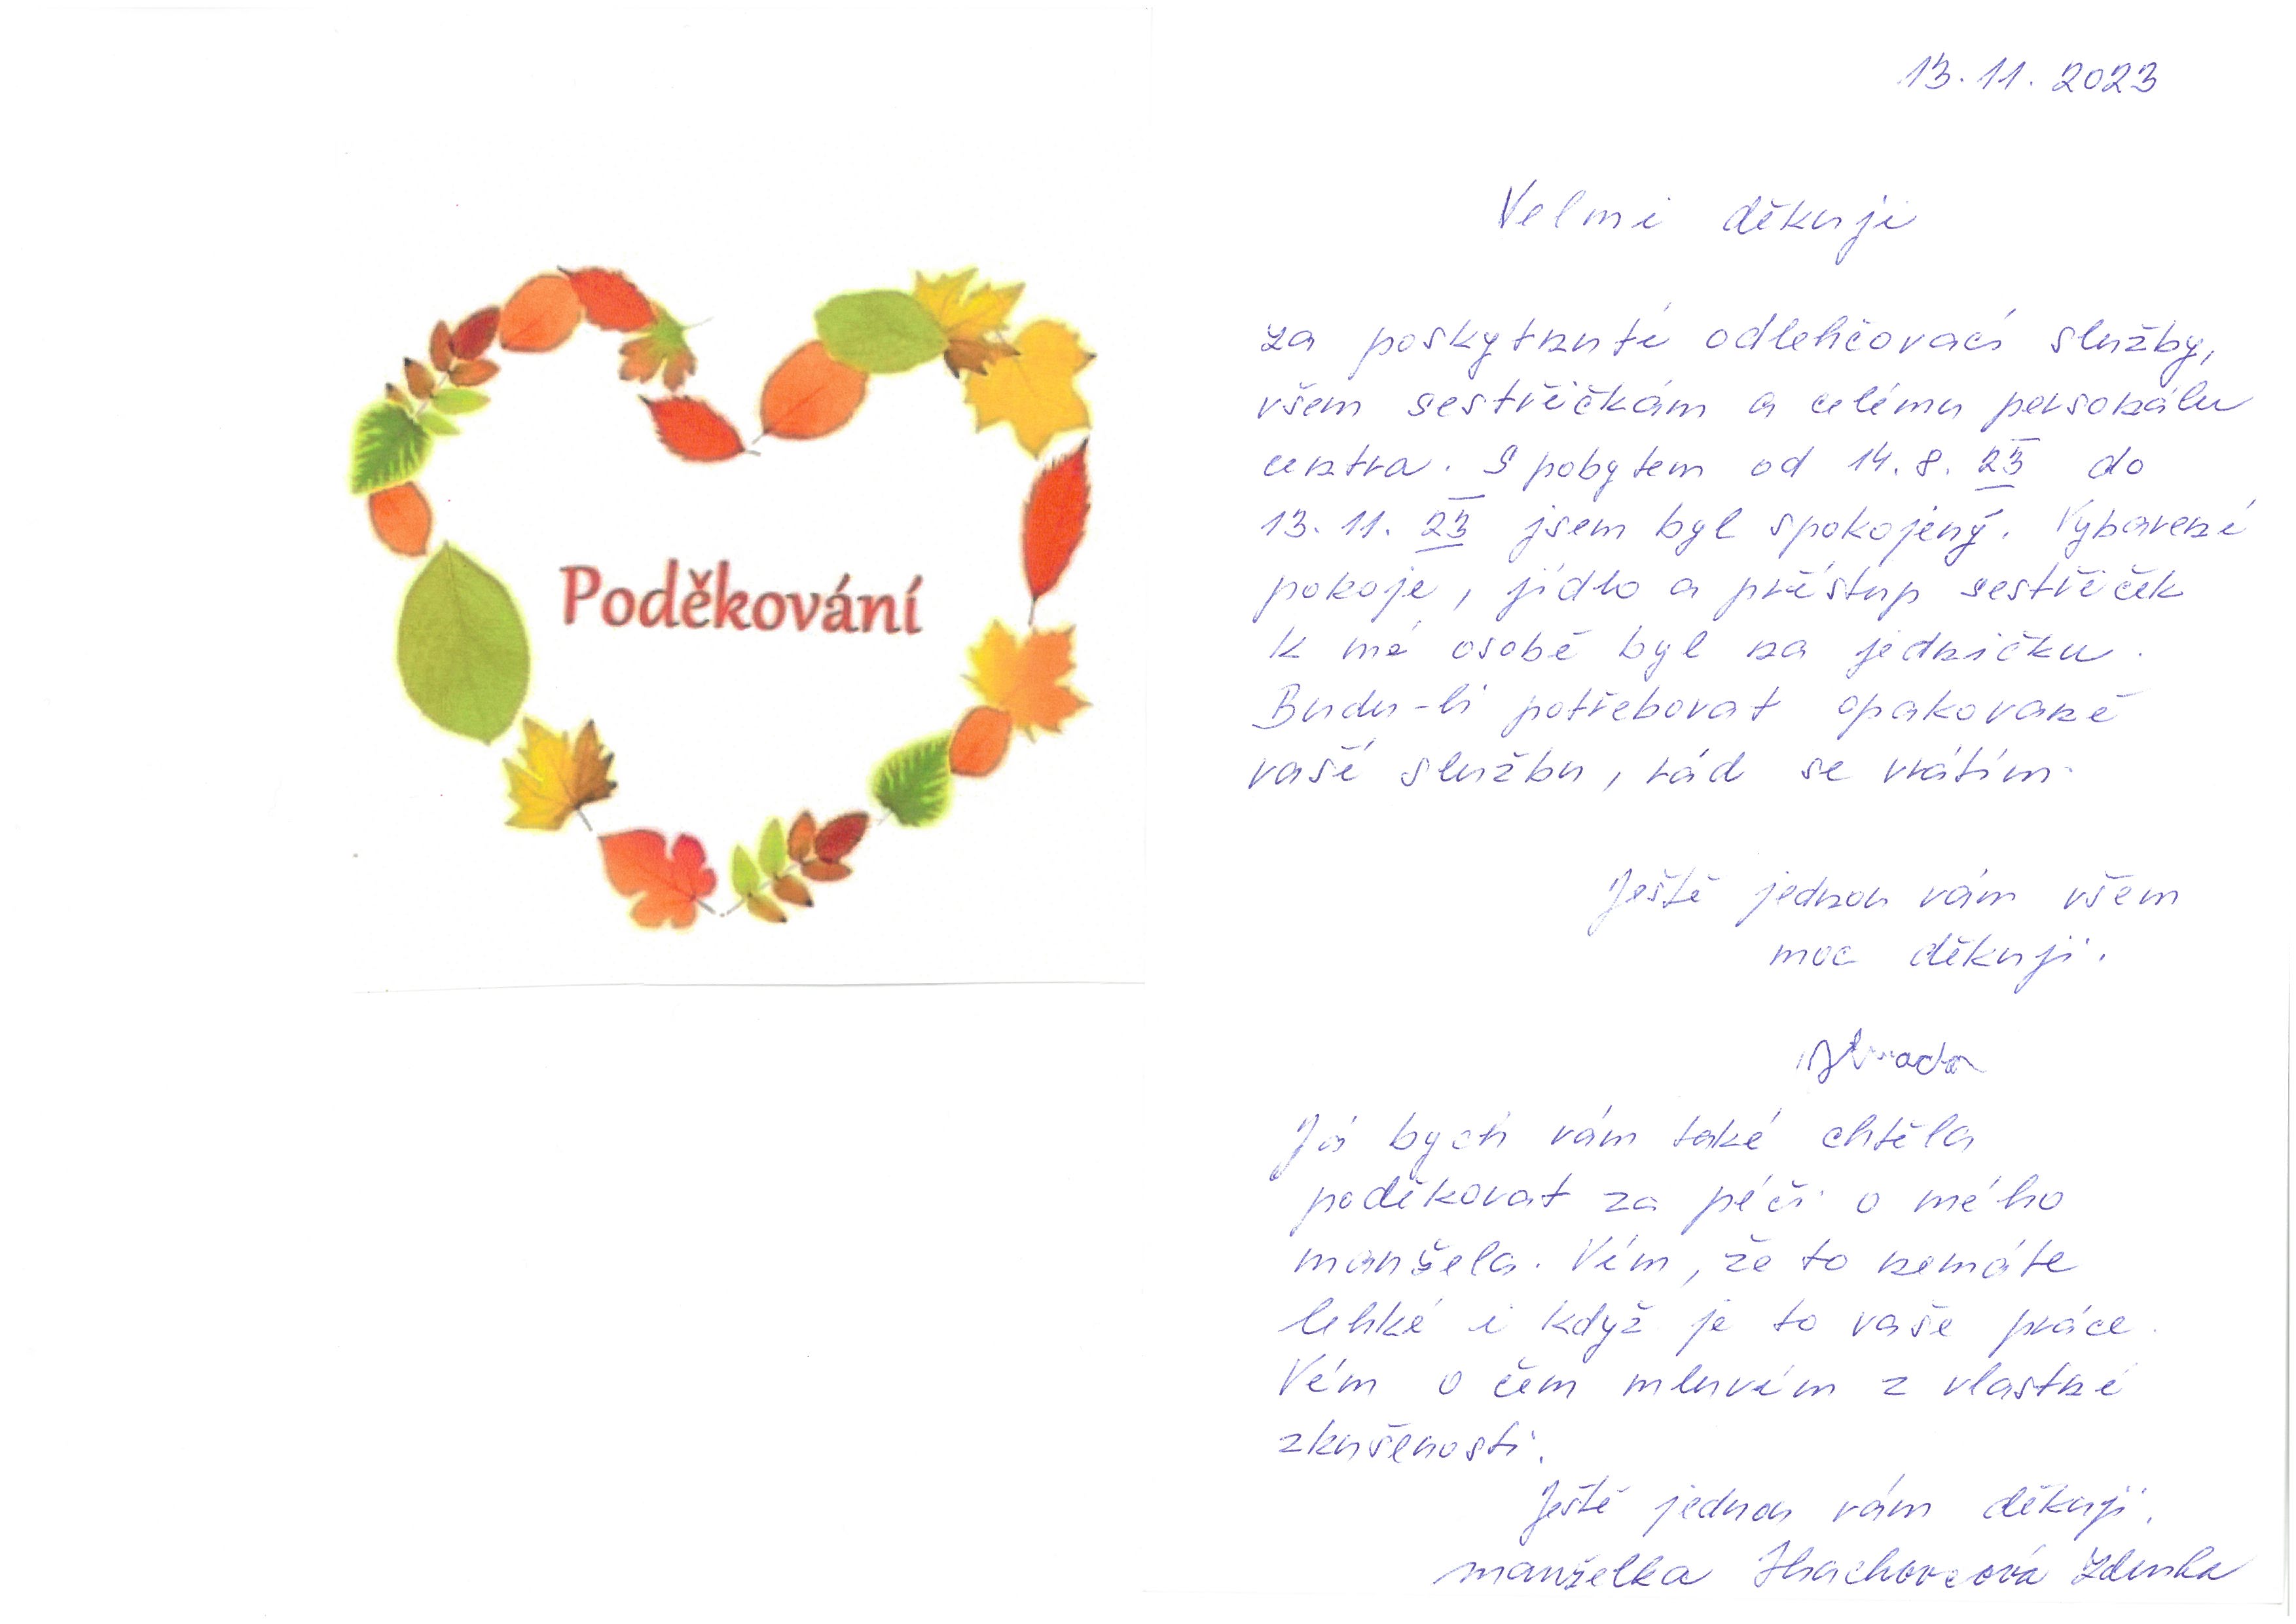 Poděkování
13. 11. 2023
Velmi děkuji
za poskytnuté odlehčovací služby,
všem sestřičkám a celému personálu
centra. S pobytem od 14. 8. 23 do
13. 11. 23 jsem byl spokojený. Vybavení
pokoje, jídlo a přístup sestřiček
k mé osobě byl na jedničku.
Budu-li potřebovat opakovaně
vaší službu, rád se vrátím.
Ještě jednou vám všem
moc děkuji.
Já bych vám také chtěla
poděkovat za péči o mého
manžela. Vím, že to nemáte
lehké i když je to vaše práce.
Vím o čem mluvím z vlastní
zkušenosti.
Ještě jednou vám děkuji.
manželka Zdenka